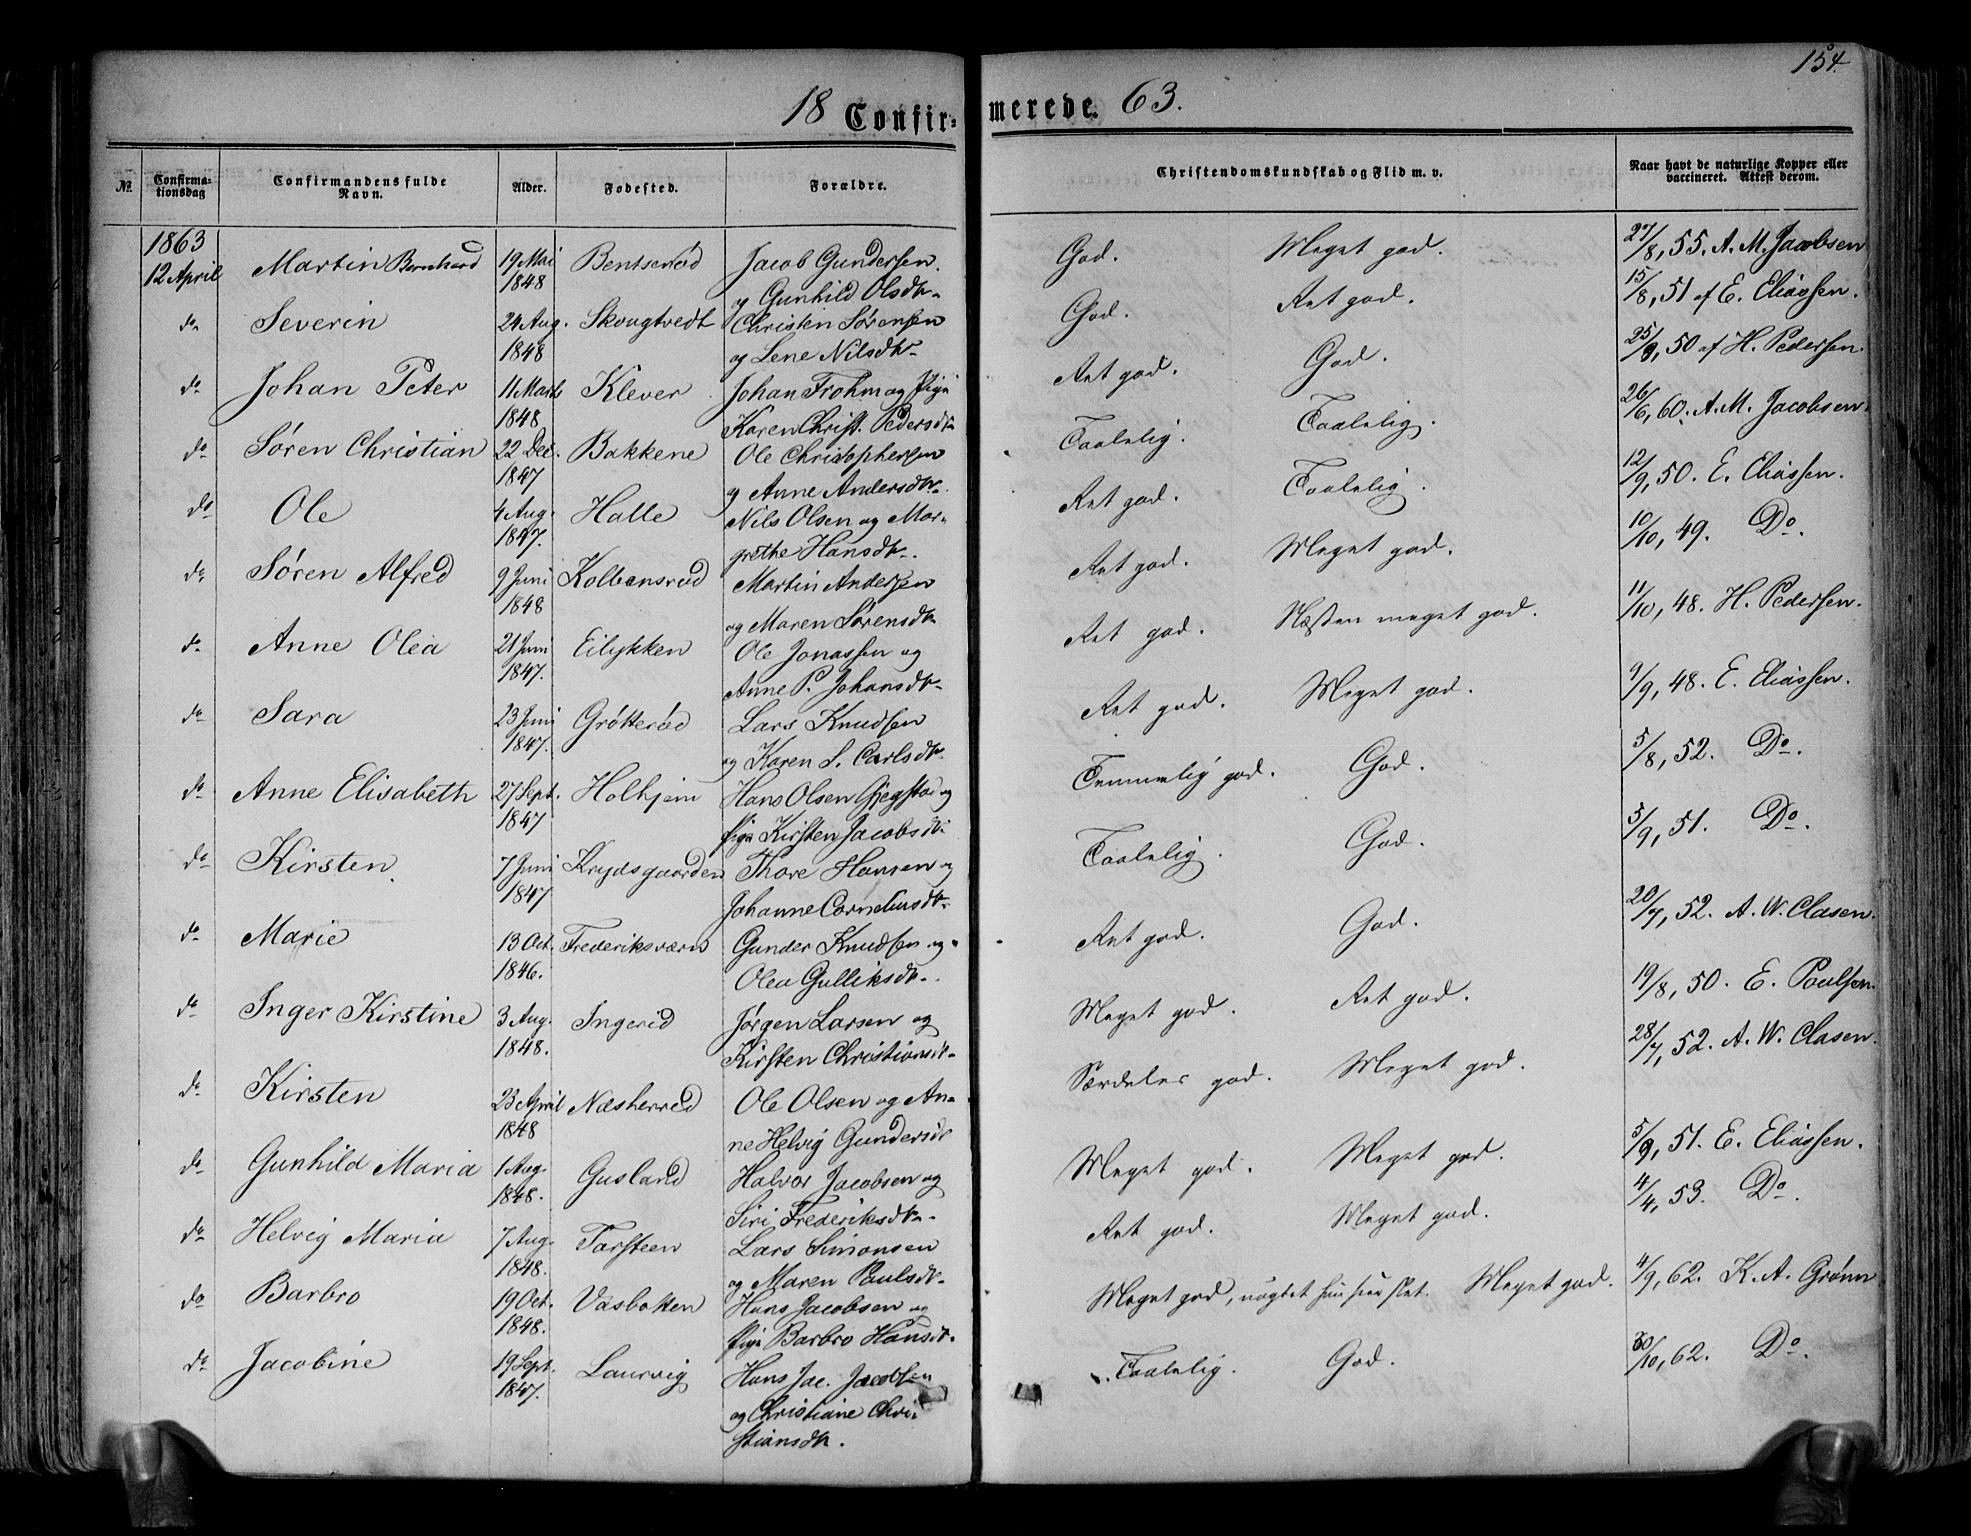 154.
18 Confir-merede. 63.
No. Confirma-tionsdag Confirmandens fulde Navn. Alder. Fødested. Forældre. Christendomskundskab og Flid m. v. Naar havt de naturlige Kopper eller vaccineret. Attest derom.
1863
12 April Martin Bernhard 19 Mai 1848 Bentserød Jacob Gundersen og Gunhild Olsdtr. God. Meget god. 27/8, 55. A. M. Jacobsen
do Severin 24 Aug. 1848 Skougtvedt Christen Sørensen og Lene Nilsdtr. God. Ret god. 15/8, 51 af E. Eliassen.
do Johan Peter 11 Marts 1848 Klever Johan Frohm og Pige Karen Christ. Pedersdtr. Ret god. God. 25/9, 50 af H. Pedersen.
do Søren Christian 22 Dec. 1847 Bakkene Ole Christophersen og Anne Andersdtr. Taalelig. Taalelig. 26/6, 60. A. M. Jacobsen.
do Ole 4 Aug. 1847. Halle Nils Olsen og Mar-grethe Hansdtr. Ret god. Taalelig. 12/9, 50. E. Eliassen.
do Søren Alfred 9 Juni 1848 Kolbensrød Martin Andersen og Maren Sørensdtr. Ret god. Meget god. 10/10, 49. Do.
do Anne Olea 21 Juni 1847. Eilykken Ole Jonassen og Anne P. Johansdtr. Ret god. Næsten meget god. 11/10, 48. H. Pedersen.
do Sara 23 Juni 1847. Grøtterød Lars Knudsen og Karen S. Carlsdtr. Ret god. Meget god. 9/9, 48. E. Eliassen.
do Anne Elisabeth 27 Sept. 1847 Holhjem Hans Olsen Gjegstad og Pige Kirsten Jacobsdtr. Temmelig god. God. 5/8, 52. Do.
do Kirsten 7 Juni 1847 Krydsgaarden Thore Hansen og Johanne Corneliusdtr. Taalelig. God. 5/9, 51. Do.
do Marie 13 Oct. 1846. Frederiksværn Gunder Knudsen og Olea Gulliksdtr. Ret god. God. 20/7, 52. A. W. Clasen.
do Inger Kirstine 3 Aug. 1848. Ingerid Jørgen Larsen og Kirsten Christiansdtr. Meget god. Ret god. 19/8, 50. E. Poulsen.
do Kirsten 23 April 1848 Næsherred Ole Olsen og An-ne Helvig Gundersdtr Særdeles god. Meget god. 28/7, 52. A. W. Clasen.
do Gunhild Maria 1 Aug. 1848. Gusland Halvor Jacobsen og Siri Frederiksdtr. Meget god. Meget god. 5/9, 51. E. Eliassen.
do Helvig Maria 7 Aug. 1848. Farsteen Lars Simonsen og Maren Paulsdtr. Ret god. Meget god. 4/4, 53. Do.
do Barbro 19 Oct. 1848. Vasbotten Hans Jacobsen og Pige Barbro Hansdtr. Meget god, Meget god. 4/9, 62. K. A. Grønn
do Jacobine 19 Sept. 1847. Laurvig Hans Jac. Jacobsen og Christiane Chri-stiansdtr. Taalelig. God. 30/10, 62. Do.